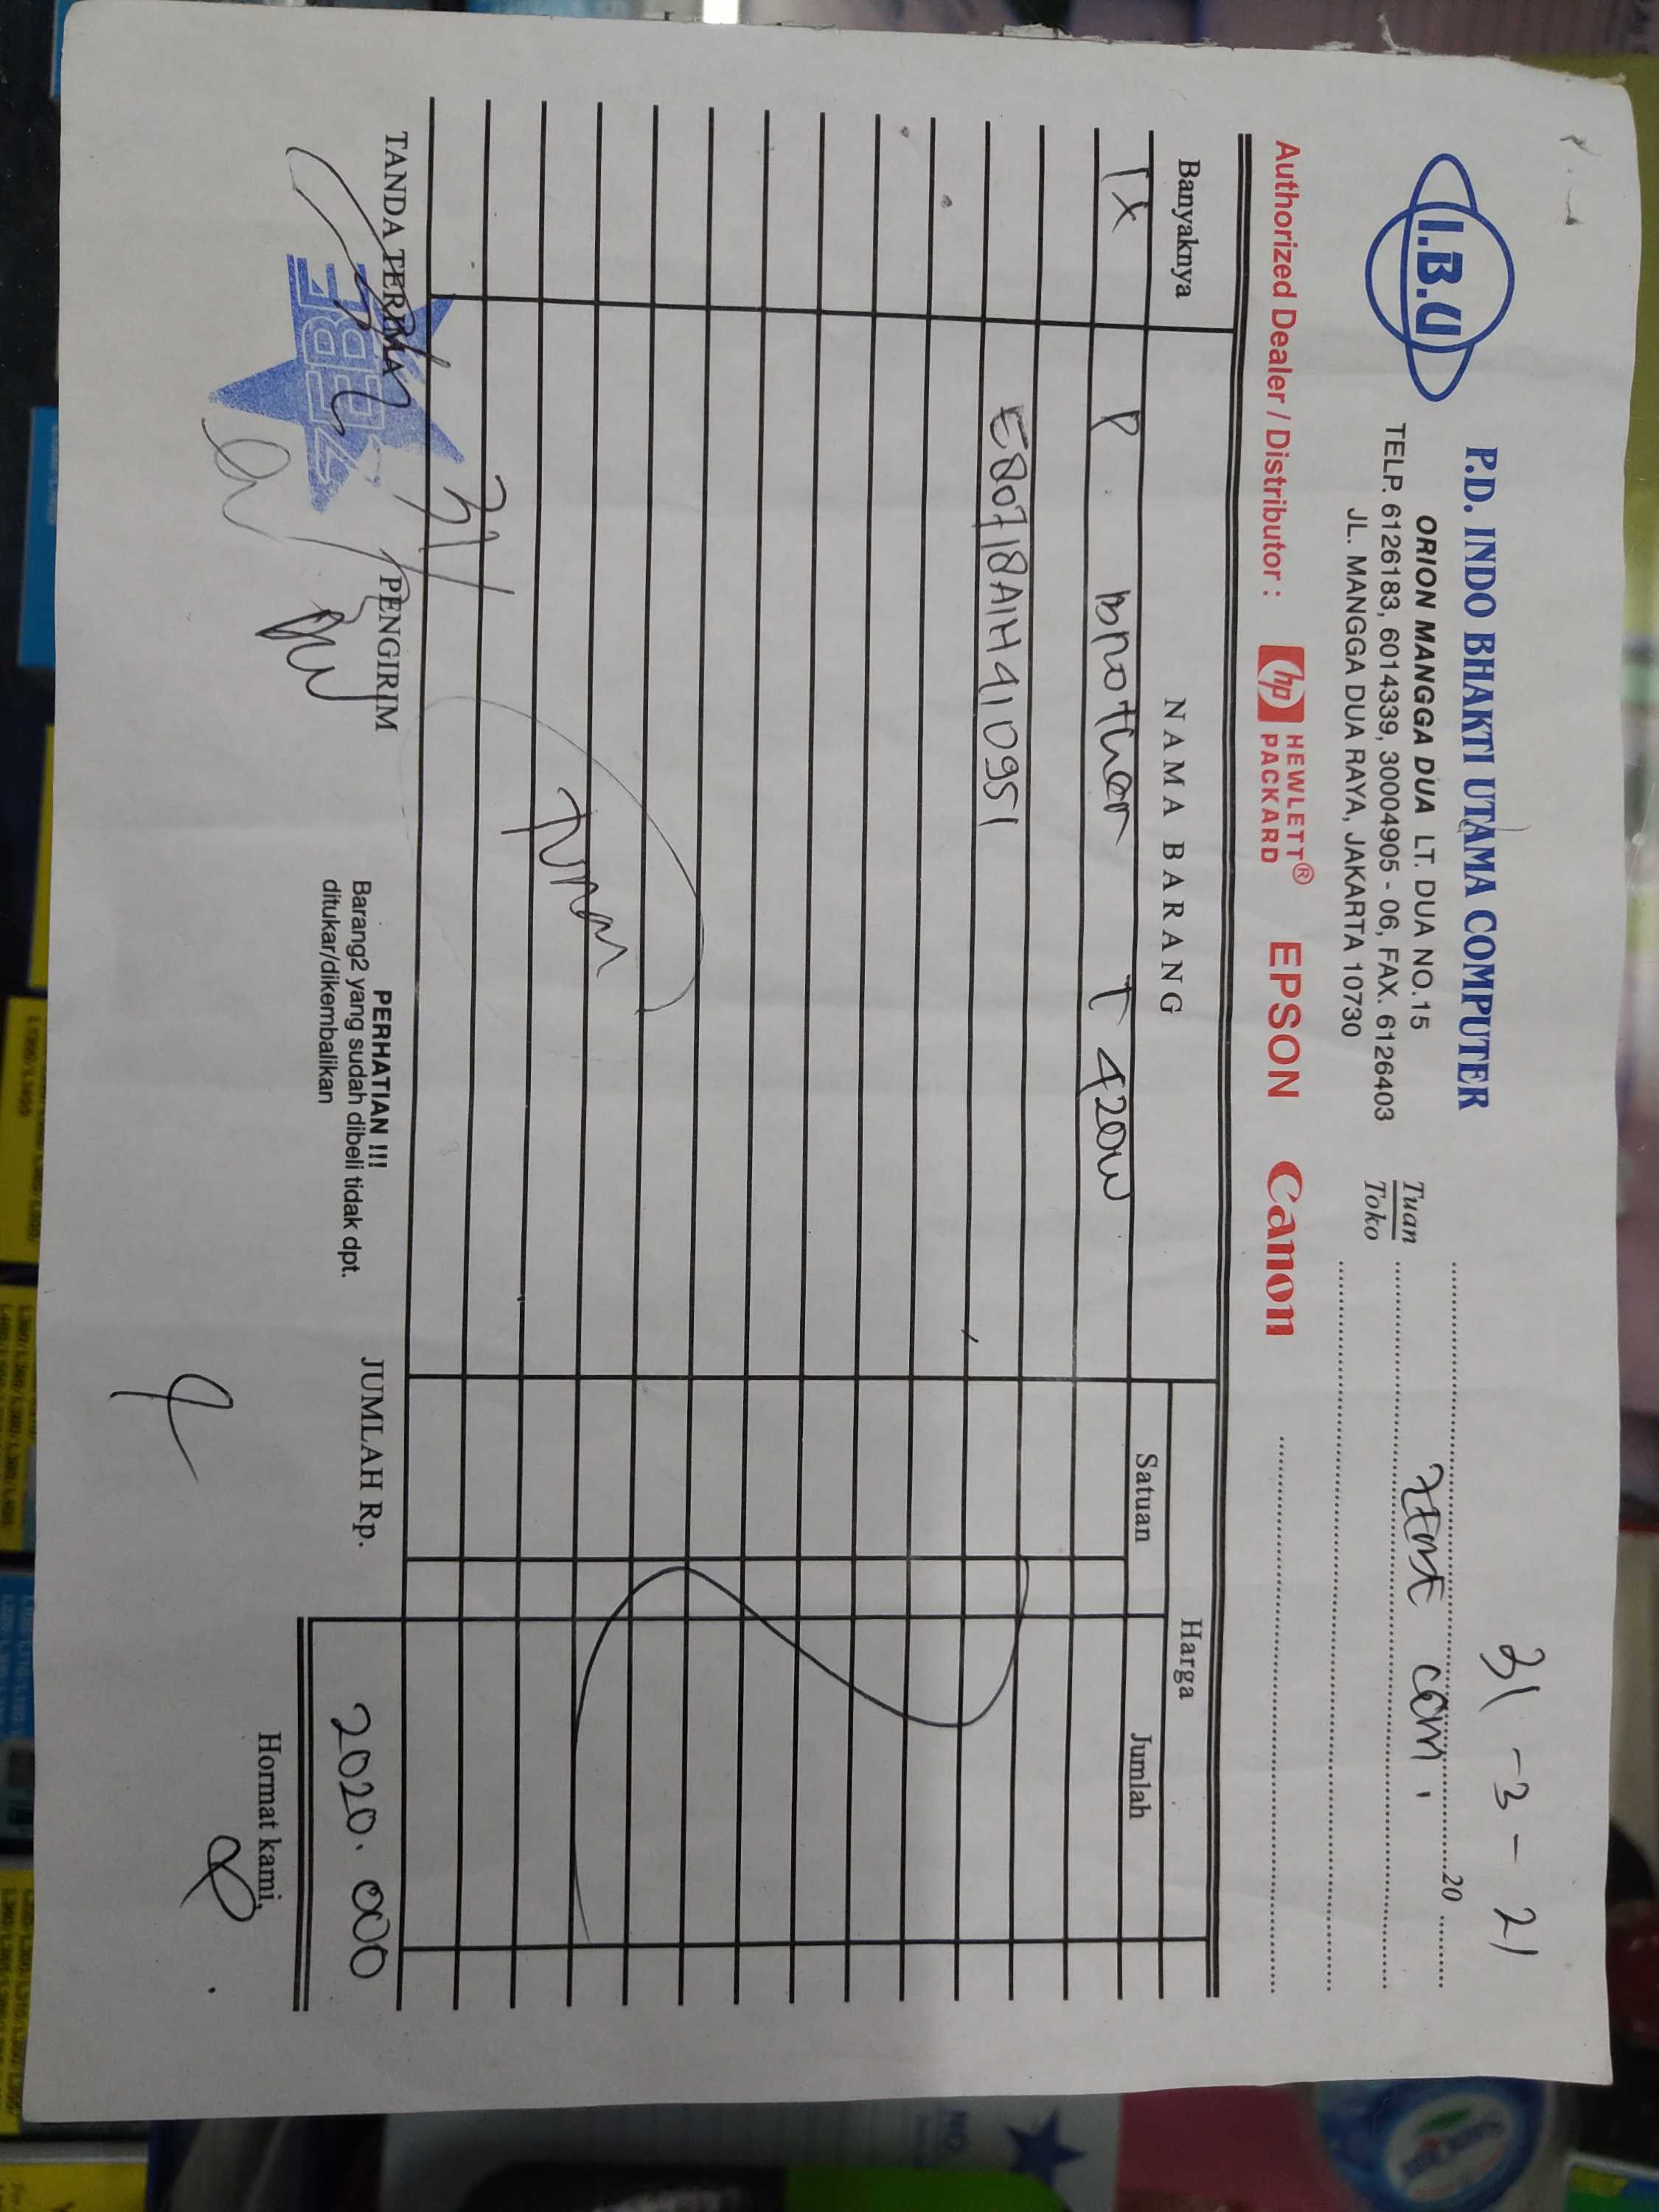 I.B.U
P.D. INDO BHAKTI UTAMA COMPUTER
ORION MANGGA DUA LT. DUA NO.15
TELP. 6126183, 6014339, 30004905 - 06, FAX. 6126403
JL. MANGGA DUA RAYA, JAKARTA 10730
31 - 3 - 21
20
Tuan
Toko
com
Authorized Dealer / Distributor : hp HEWLETT® PACKARD EPSON Canon
Banyaknya NAMA BARANG Harga
Satuan Jumlah
1X P Brother T 420W
E80718A1H410951
TANDA TERIMA
PENGIRIM
PERHATIAN !!!
Barang2 yang sudah dibeli tidak dpt.
ditukar/dikembalikan
JUMLAH Rp. 2020.000
Hormat kami,